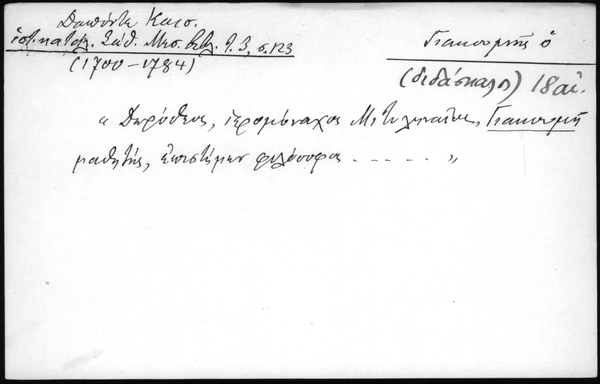 Δαπόντε Καισ.
ἱστ. καταλ. Σάθ. Μεσ. Βιβλ. τ. 3, σ. 123
(1700-1784)
Γιακουμῆς ὁ
(διδάσκαλος) 18 αἰ.
" Δωρόθεος, ἱερομόναχος Μιτυληναῖος, Γιακουμῆ
μαθητής, ἐπιστήμων φιλόσοφος . _ . _ . _ . "